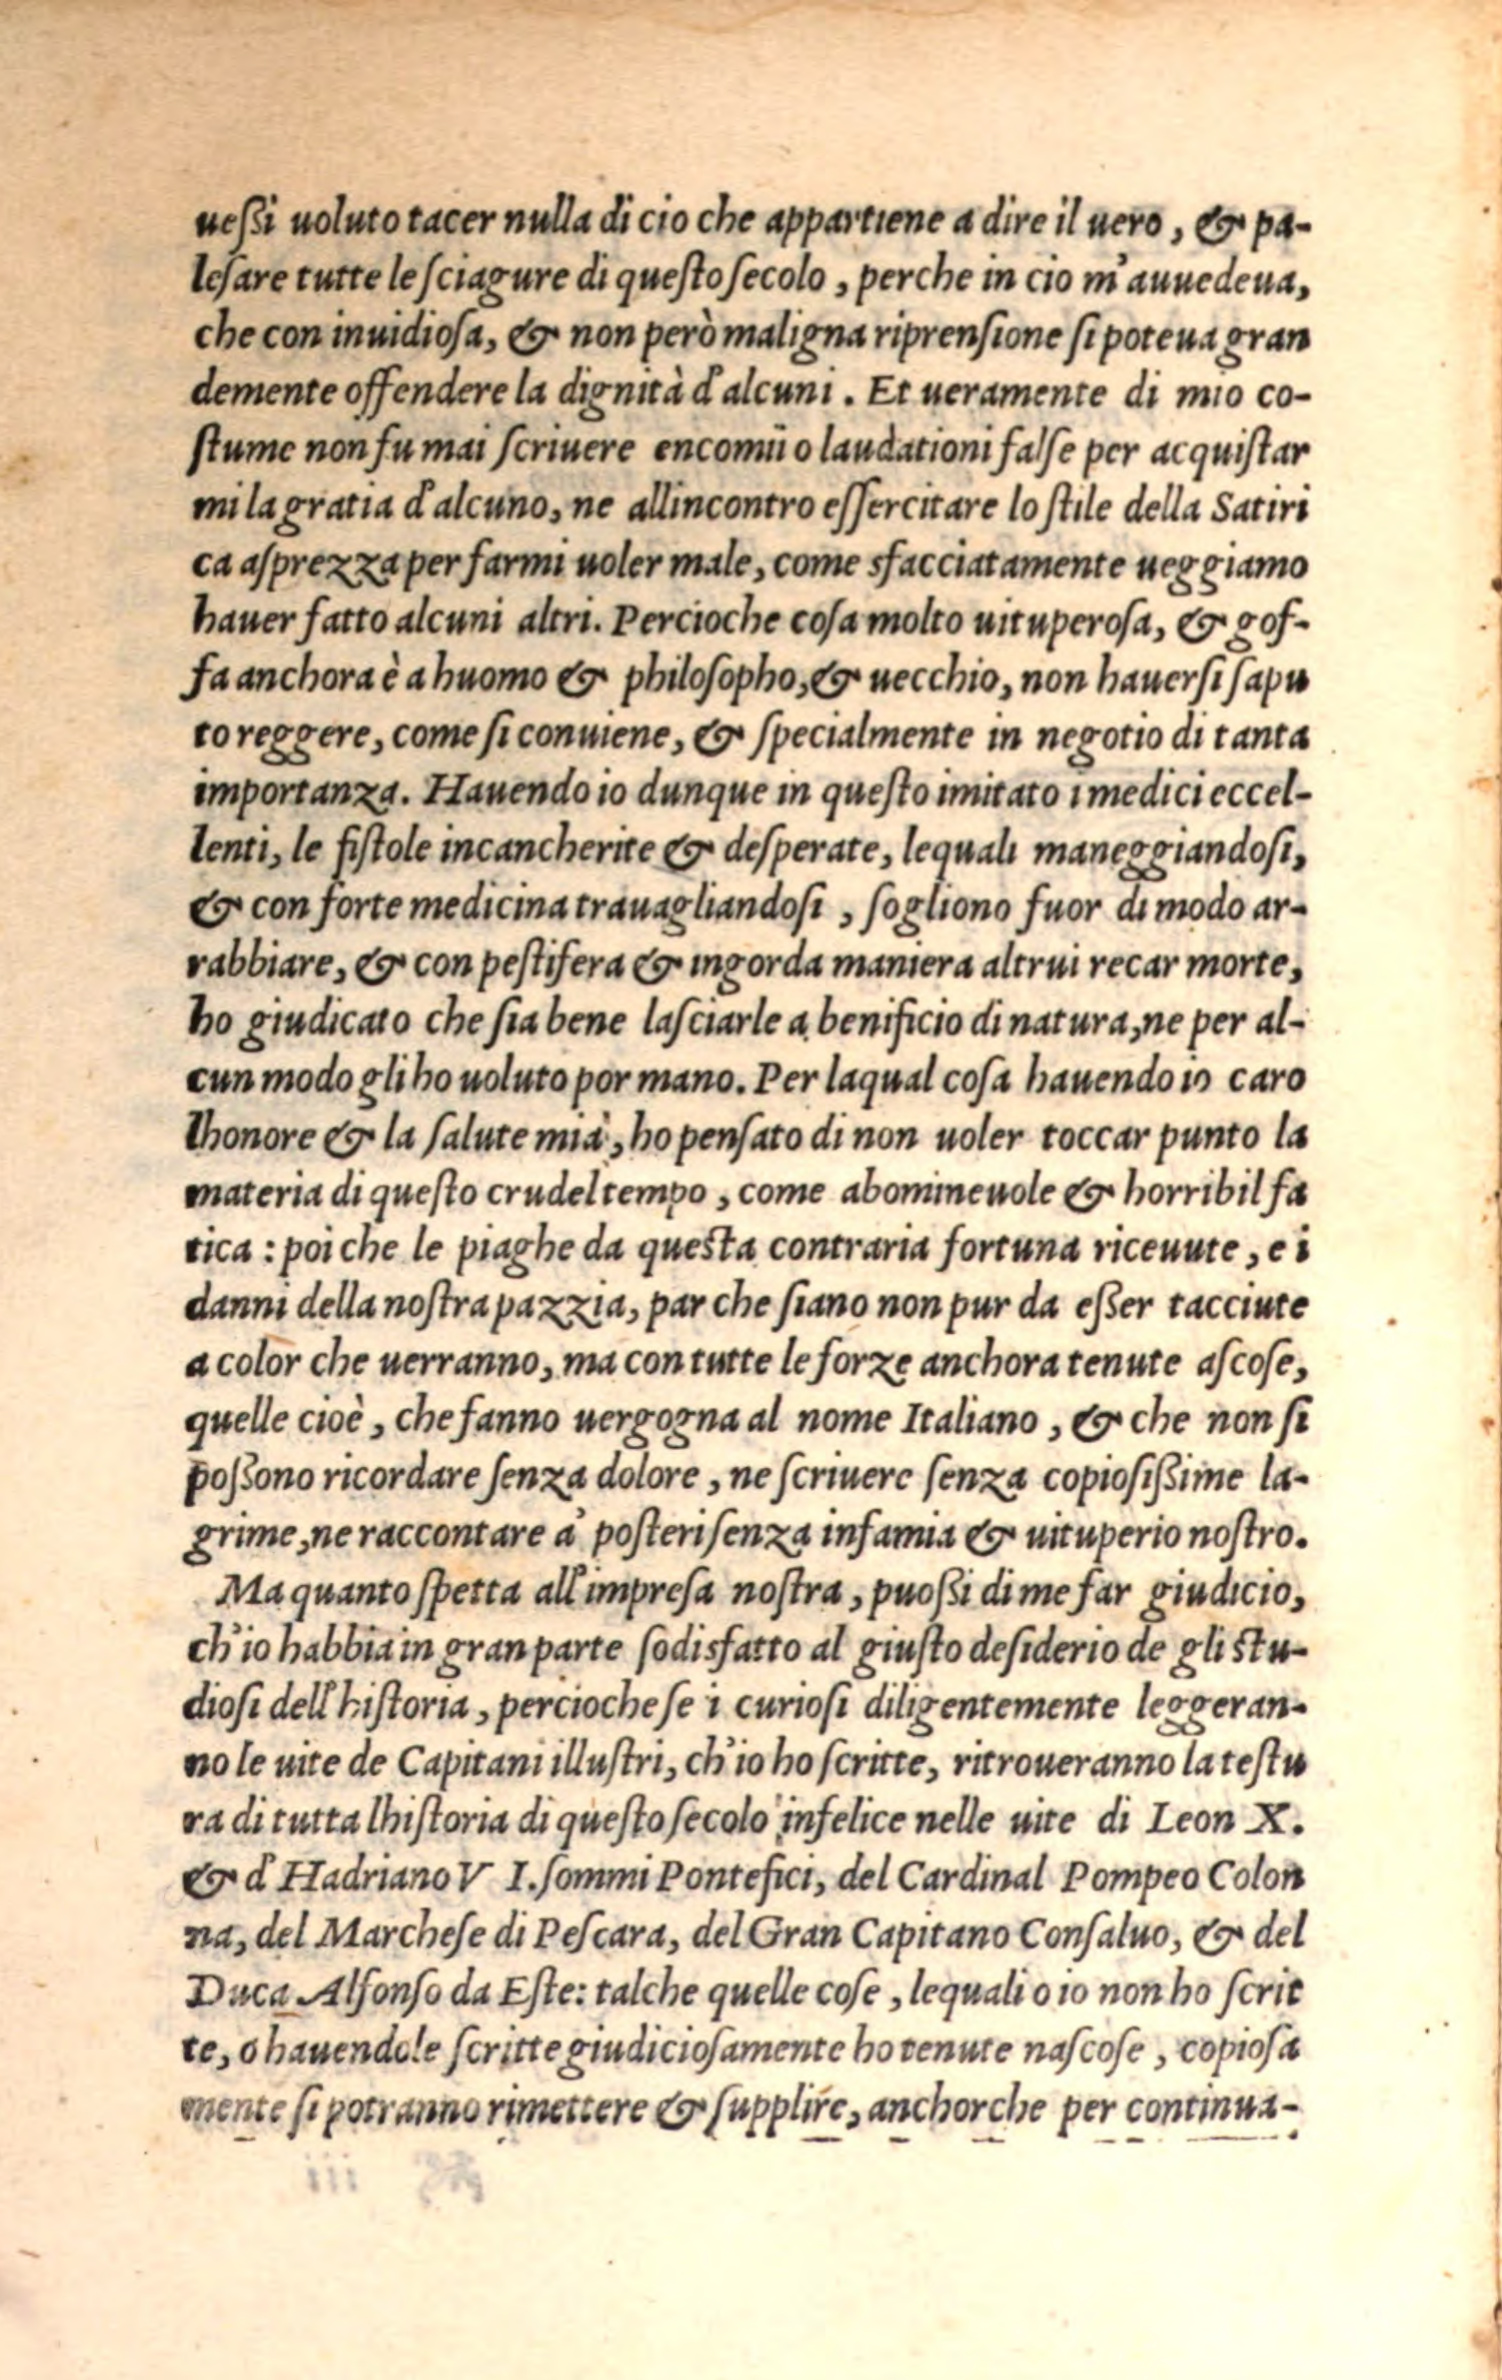 ueſsi uoluto tacer nulla di cio che appartiene a dire il uero, & pa-
leſare tutte le ſciagure di queſto ſecolo, perche in cio m'auuedeua,
che con inuidioſa, & non però maligna riprenſione ſi poteua gran
demente offendere la dignità d'alcuni. Et ueramente di mio co-
ſtume non fu mai ſcriuere encomii o laudationi falſe per acquiſtar
mi la gratia d'alcuno, ne allincontro eſſercitare lo ſtile della Satiri
ca aſprezza per farmi uoler male, come sfacciatamente ueggiamo
hauer fatto alcuni altri. Percioche coſa molto uituperoſa, & gof-
fa anchora è a huomo & philoſopho, & uecchio, non hauerſi ſapu
to reggere, come ſi conuiene, & ſpecialmente in negotio di tanta
importanza. Hauendo io dunque in queſto imitato i medici eccel-
lenti, le fiſtole incancherite & deſperate, lequali maneggiandoſi,
& con forte medicina trauagliandoſi, ſogliono fuor di modo ar-
rabbiare, & con peſtifera & ingorda maniera altrui recar morte,
ho giudicato che ſia bene laſciarle a benificio di natura, ne per al-
cun modo gli ho uoluto por mano. Per laqual coſa hauendo io caro
lhonore & la ſalute mia, ho penſato di non uoler toccar punto la
materia di queſto crudel tempo, come abomineuole & horribil fa
tica: poi che le piaghe da queſta contraria fortuna riceuute, e i
danni della noſtra pazzia, par che ſiano non pur da eſſer tacciute
a color che uerranno, ma con tutte le forze anchora tenute aſcoſe,
quelle cioè, che fanno uergogna al nome Italiano, & che non ſi
poſſono ricordare ſenza dolore, ne ſcriuere ſenza copioſiſsime la-
grime, ne raccontare a' poſteri ſenza infamia & uituperio noſtro.
Ma quanto ſpetta all'impreſa noſtra, puoſsi di me far giudicio,
ch'io habbia in gran parte ſodisfatto al giuſto deſiderio de gli ſtu-
dioſi dell'hiſtoria, percioche ſe i curioſi diligentemente leggeran-
no le uite de Capitani illuſtri, ch'io ho ſcritte, ritroueranno la teſtu
ra di tutta lhiſtoria di queſto ſecolo infelice nelle uite di Leon X.
& d'Hadriano V I. ſommi Pontefici, del Cardinal Pompeo Colon
na, del Marcheſe di Peſcara, del Gran Capitano Conſaluo, & del
Duca Alfonſo da Eſte: talche quelle coſe, lequali o io non ho ſcrit
te, o hauendole ſcritte giudicioſamente ho tenute naſcoſe, copioſa
mente ſi potranno rimettere & ſupplire, anchorche per continua-